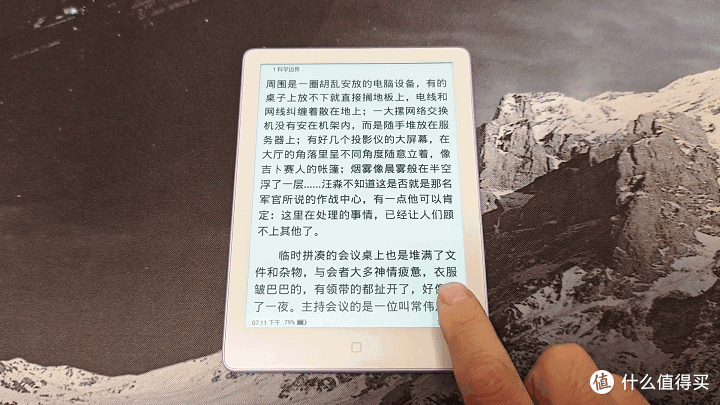 1 科学边界
周围是一圈胡乱安放的电脑设备，有的
桌子上放不下就直接搁地板上，电线和
网线纠缠着散在地上；一大摞网络交换
机没有安在机架内，而是随手堆放在服
务器上；有好几个投影仪的大屏幕，在
大厅的角落里呈不同角度随意立着，像
吉卜赛人的帐篷；烟雾像晨雾般在半空
浮了一层……汪淼不知道这是否就是那名
军官所说的作战中心，有一点他可以肯
定：这里在处理的事情，已经让人们顾
不上其他了。
临时拼凑的会议桌上也是堆满了文
件和杂物，与会者大多神情疲惫，衣服
皱巴巴的，有领带的都扯开了，好像
了一夜。主持会议的是一位叫常伟
07:11 下午 79%
值 什么值得买